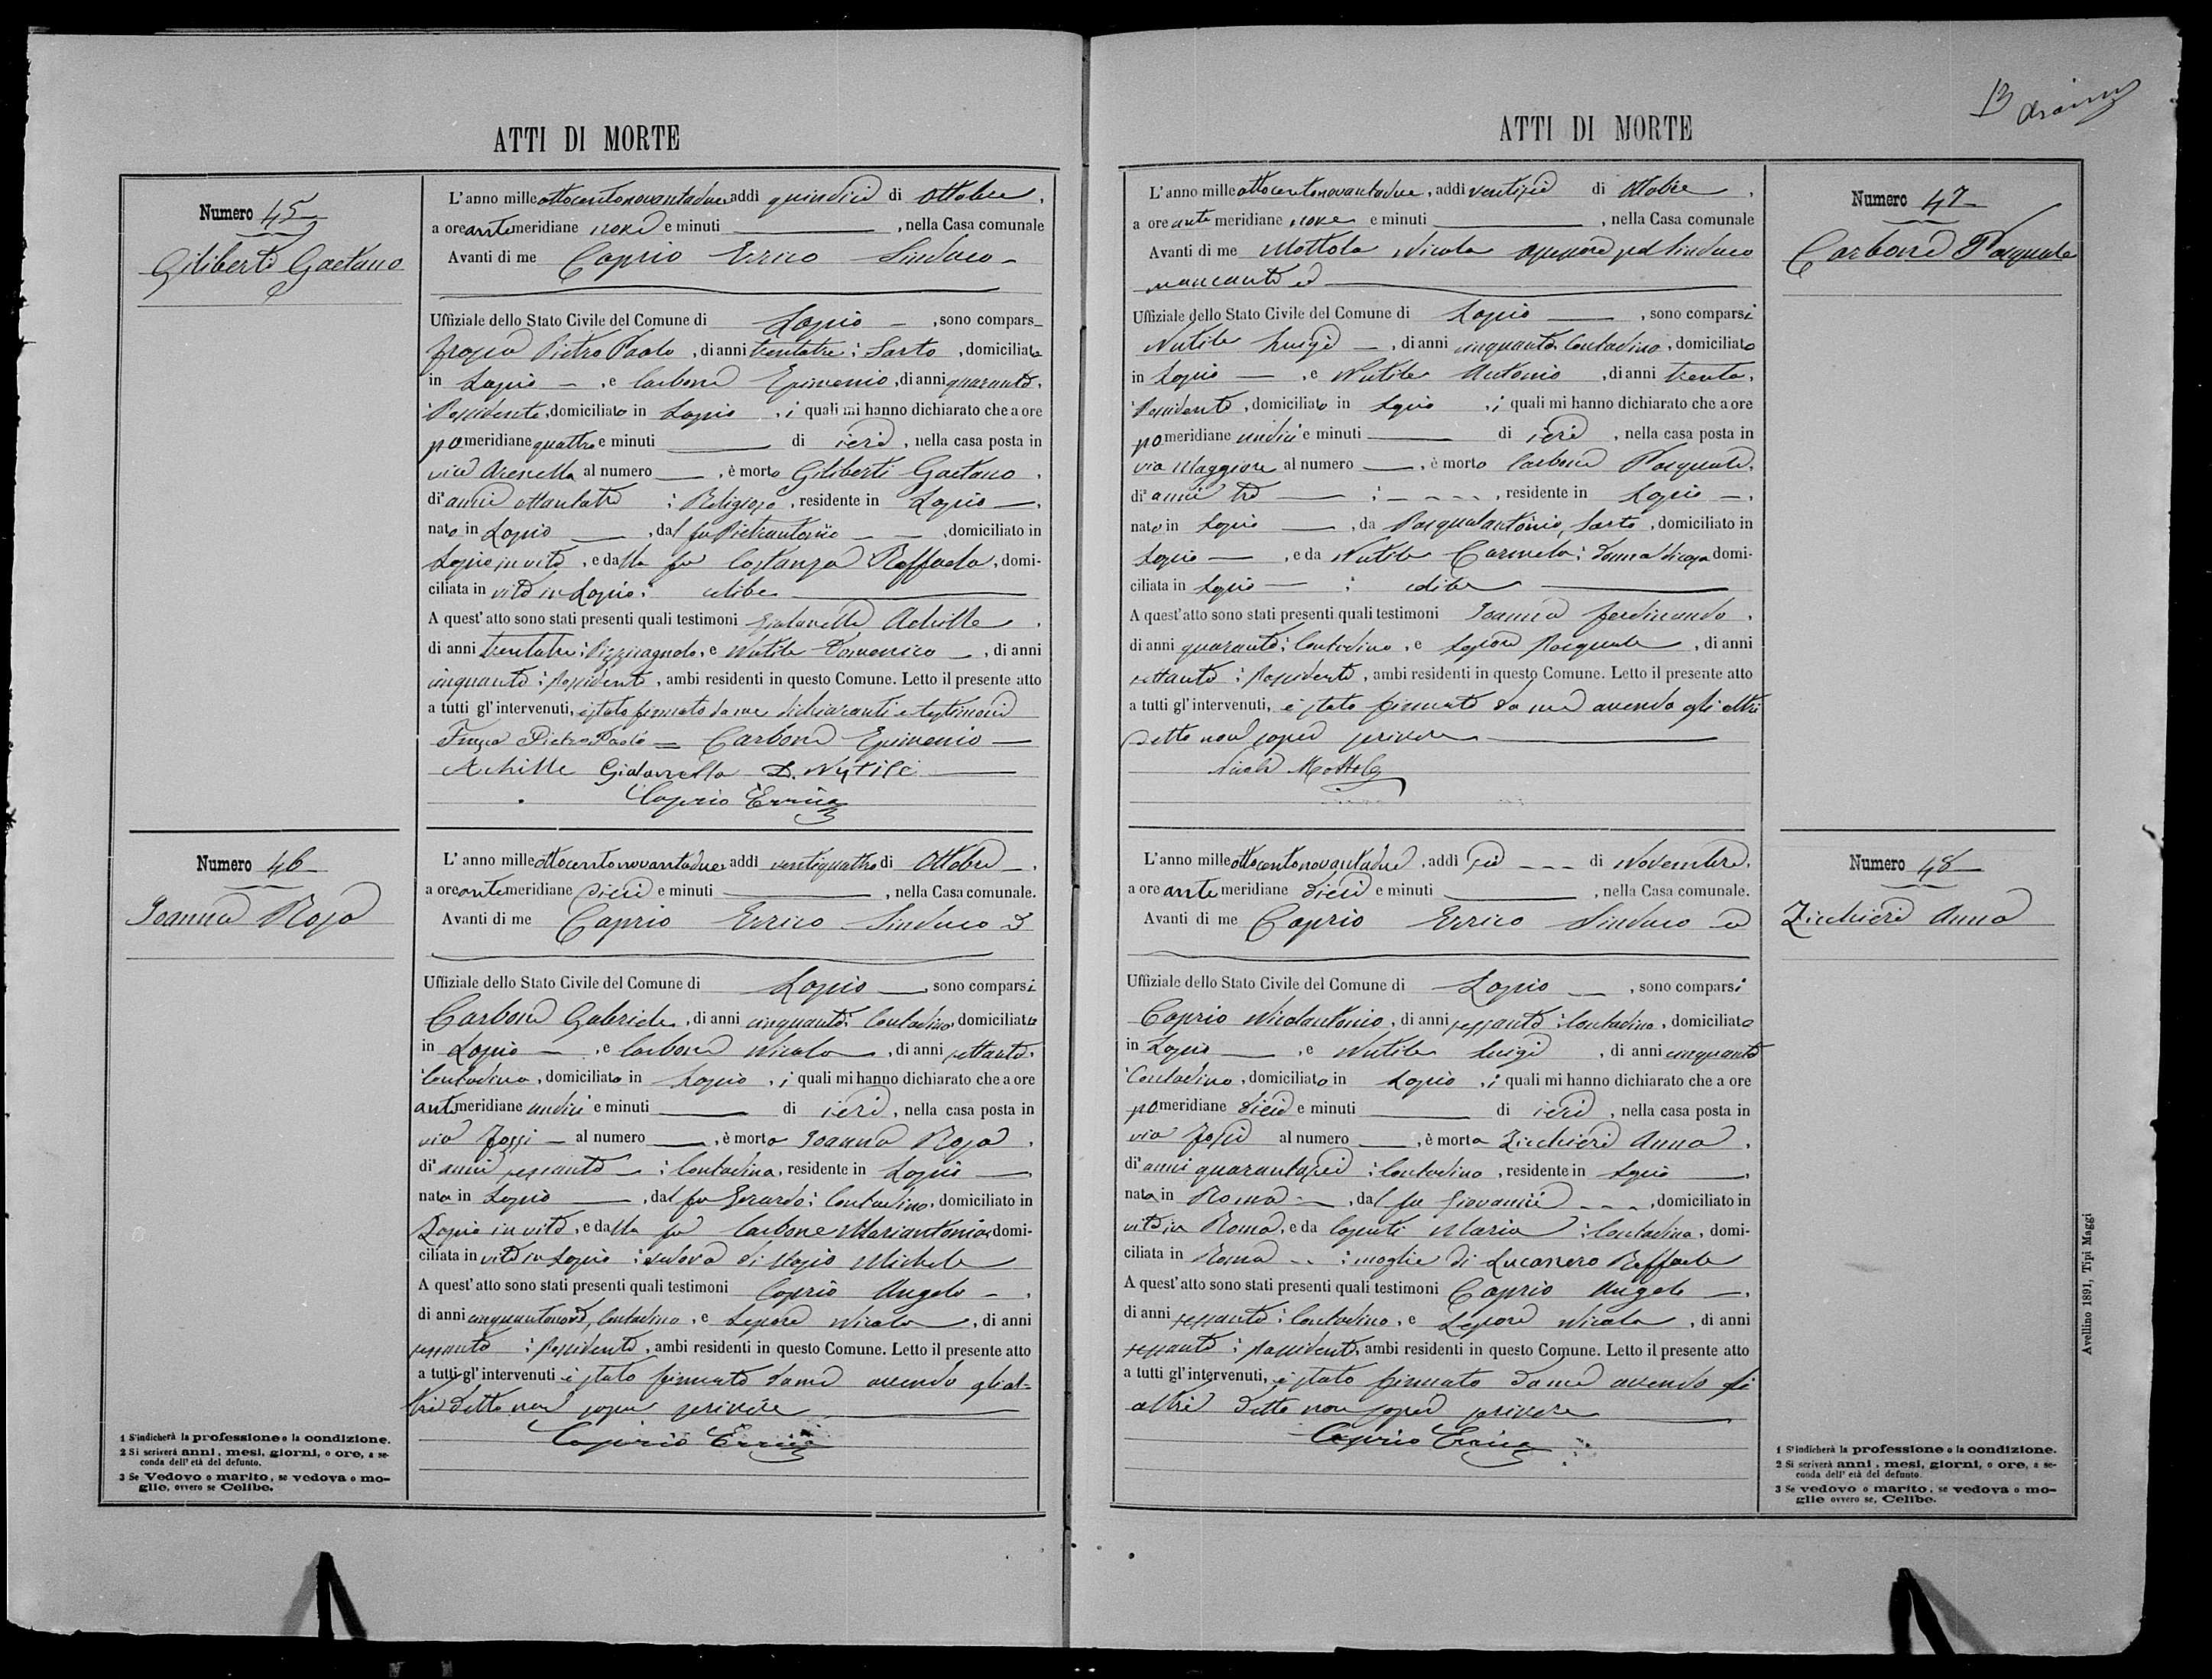 ATTI DI MORTE
Numero 45
Giliberti Gaetano
L'anno mille ottocentonovantadue addì quindici di Ottobre,
a ore antemeridiane nove e minuti , nella Casa comunale
Avanti di me Caprio Errico Sindaco
Uffiziale dello Stato Civile del Comune di Lapio , sono compars
Pietro Paolo, di anni trentatre; Sarto, domiciliato
in Lapio , e Carbone Epimenio, di anni quaranta,
Possidente, domiciliato in Lapio , i quali mi hanno dichiarato che a ore
pomeridiane quattro e minuti di ieri, nella casa posta in
via Arenella al numero , è morto Giliberti Gaetano,
di anni ottantatre ; Religioso, residente in Lapio ,
nato in Lapio , dal fu Pietrantonio , domiciliato in
Lapio in vita, e dalla fu Costanza Raffaela, domi-
ciliata in vita in Lapio; celibe
A quest'atto sono stati presenti quali testimoni Gialanella Achille ,
di anni trentatre; Pizzicagnolo, e Nutile Domenico , di anni
cinquanta; Possidente, ambi residenti in questo Comune. Letto il presente atto
a tutti gl'intervenuti, è stato firmato da me dichiaranti e testimoni
Pietro Paolo = Carbone Epimenio
Achille Gialanella D. Nutile
Caprio Errico
Numero 46
Ioanna Rosa
L'anno mille ottocentonovantadue addì ventiquattro di Ottobre ,
a ore antemeridiane dieci e minuti , nella Casa comunale.
Avanti di me Caprio Errico Sindaco ed
Uffiziale dello Stato Civile del Comune di Lapio , sono comparsi
Carbone Gabriele, di anni cinquanta; Contadino, domiciliato
in Lapio , e Carbone Nicola , di anni settanta,
Contadino, domiciliato in Lapio , i quali mi hanno dichiarato che a ore
antemeridiane undici e minuti di ieri, nella casa posta in
via Fossi al numero , è morta Ioanna Rosa ,
di anni sessanta ; Contadina, residente in Lapio ,
nata in Lapio , dal fu Gerardo; Contadino, domiciliato in
Lapio in vita, e dalla fu Carbone Mariantonia, domi-
ciliata in vita in Lapio; vedova di Michele
A quest'atto sono stati presenti quali testimoni Caprio Angelo ,
di anni cinquantanove, Contadino, e Lepore Nicola , di anni
sessanta ; Possidente, ambi residenti in questo Comune. Letto il presente atto
a tutti gl'intervenuti è stato firmato da me avendo gli al-
tri detto non saper scrivere
Caprio Errico
1 S'indicherà la professione o la condizione.
2 Si scriverà anni, mesi, giorni, o ore, a se-
conda dell'età del defunto.
3 Se Vedovo o marito, se vedova o mo-
glie, ovvero se Celibe.
ATTI DI MORTE
13
Numero 47
Carbone Pasquale
L'anno mille ottocentonovantadue, addì ventisei di Ottobre ,
a ore antemeridiane nove e minuti , nella Casa comunale
Avanti di me Mottola Nicola Assessore pel Sindaco
mancante ed
Uffiziale dello Stato Civile del Comune di Lapio , sono comparsi
Nutile Luigi , di anni cinquanta Contadino, domiciliato
in Lapio , e Nutile Antonio , di anni trenta,
Possidente, domiciliato in Lapio , i quali mi hanno dichiarato che a ore
pomeridiane undici e minuti di ieri , nella casa posta in
via Maggiore al numero , è morto Carbone Pasquale,
di anni tre ; , residente in Lapio ,
nato in Lapio , da Pasqualantonio, Sarto, domiciliato in
Lapio , e da Nutile Carmela; donna di casa domi-
ciliata in Lapio ; celibe
A quest'atto sono stati presenti quali testimoni Ioanna Ferdinando ,
di anni quaranta; Contadino, e Lepore Pasquale , di anni
settanta ; Possidente, ambi residenti in questo Comune. Letto il presente atto
a tutti gl'intervenuti, è stato firmato da me avendo gli altri
detto non saper scrivere
Nicola Mottola
Numero 48
Zicchieri Anna
L'anno mille ottocentonovantadue, addì sei di Novembre,
a ore antemeridiane dieci e minuti , nella Casa comunale.
Avanti di me Caprio Errico Sindaco ed
Uffiziale dello Stato Civile del Comune di Lapio , sono comparsi
Caprio Nicolantonio, di anni sessanta; Contadino, domiciliato
in Lapio , e Nutile Luigi , di anni cinquanta
Contadino, domiciliato in Lapio , i quali mi hanno dichiarato che a ore
pomeridiane dieci e minuti di ieri , nella casa posta in
via Fossi al numero , è morta Zicchieri Anna ,
di anni quarantasei ; Contadina, residente in Lapio ,
nata in Roma , dal fu Giovanni , domiciliato in
vita in Roma, e da Caputi Maria ; Contadina, domi-
ciliata in Roma ; moglie di Lucanero Raffaele
A quest'atto sono stati presenti quali testimoni Caprio Angelo ,
di anni sessanta; Contadino, e Lepore Nicola , di anni
sessanta; Possidente, ambi residenti in questo Comune. Letto il presente atto
a tutti gl'intervenuti, è stato firmato da me avendo gli
altri detto non saper scrivere
Caprio Errico
1 S'indicherà la professione o la condizione.
2 Si scriverà anni, mesi, giorni, o ore, a se-
conda dell'età del defunto.
3 Se vedovo o marito, se vedova o mo-
glie ovvero se, Celibe.
Avellino 1891, Tipi Maggi